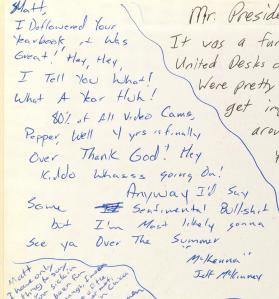 Matt,
I Deflowered Your
Yearbook it Was
Great! Hey, Hey,
I Tell You What!
What A Year Huh!
80% of All Video Cams,
Pepper, Well 4 yrs is finally
Over Thank God! Hey
Kiddo Whasss Going On!
Anyway I'd Say
Some Sentimental Bullshit
but I'm Most likely gonna
see ya Over The Summer
"McKenna"
Jeff McKinney
Mr. Preside
It was a fu
United Desks
Were pretty
get in
arou
Y
Matt
I have only